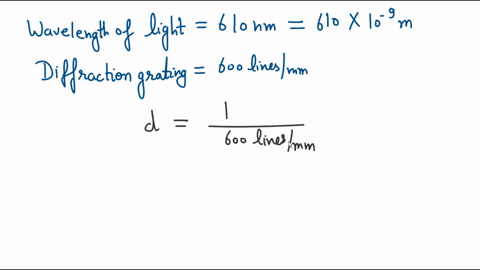 Wavelength of light = 610 nm = 610 × 10⁻⁹ m
Diffraction grating = 600 lines/mm
d = 1 / 600 lines/mm